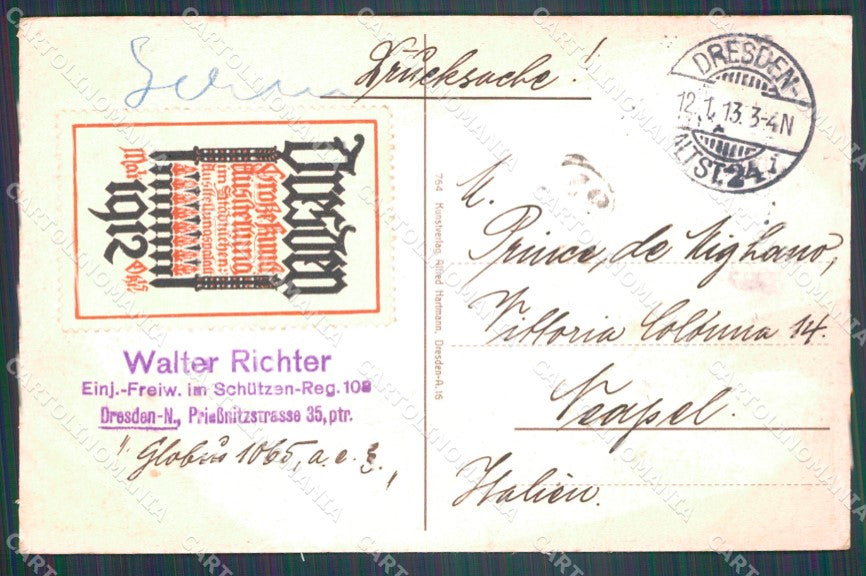 Drucksache!
DRESDEN-
12.1.13.3-4N
ALTST. 24 i
Dresden
Große Kunst
Ausstellung
im Städtischen
Ausstellungspalast
Mai 1912 Okt.
Walter Richter
Einj.-Freiw. im Schützen-Reg. 108
Dresden-N., Prießnitzstrasse 35, ptr.
"Globus 1065, a. c. E.
764 Kunstverlag Alfred Hartmann, Dresden-A. 16
M.
Prince, de Mighano,
Vittoria Colonna 14.
Neapel.
Italien.
CARTOLINOMANIA